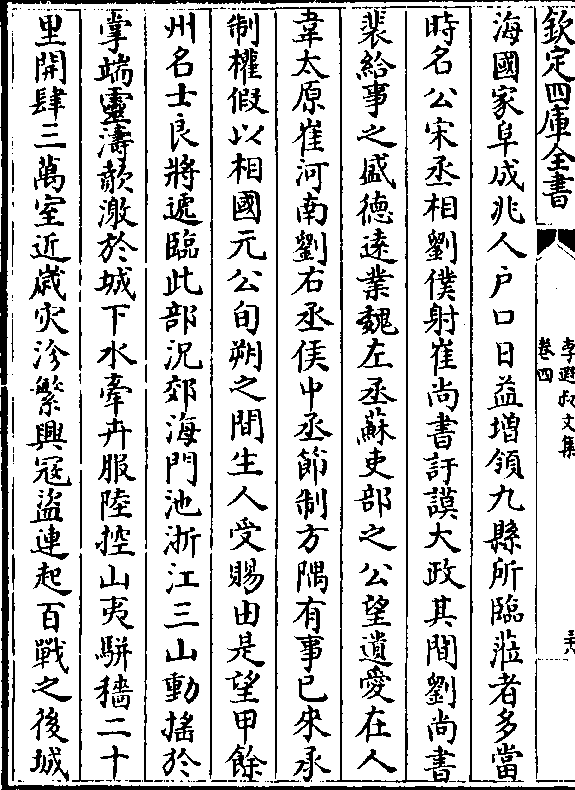 欽定四庫全書
李遐叔文集
卷四
海國家阜成兆人户口日益增領九縣所臨蒞者多當
時名公宋丞相劉僕射崔尚書訏謨大政其間劉尚書
裴給事之盛德遠業魏左丞蘇吏部之公望遺愛在人
韋太原崔河南劉右丞侯中丞節制方隅有事已來承
制權假以相國元公旬朔之間生人受賜由是望甲餘
州名士良將遞臨此部況郊海門池浙江三山動揺於
掌端靈濤歕激於城下水牽卉服陸控山夷駢檣二十
里開肆三萬室近歳灾沴繁興冦盜連起百戰之後城